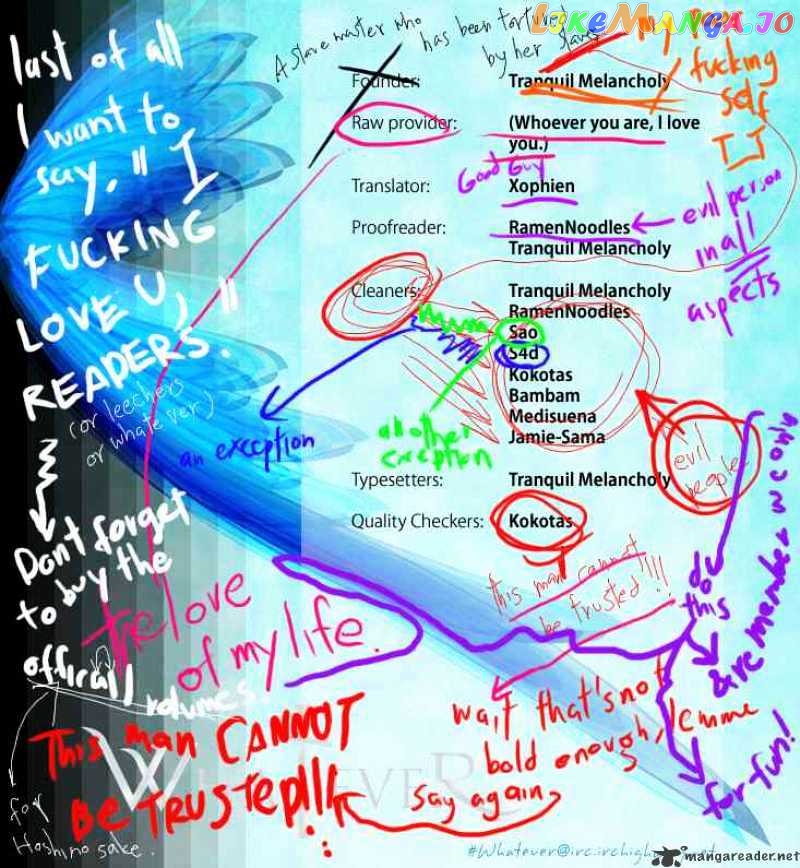 LikeManga.io
A slave master who
has been tortured
by her slaves
my
fucking
self
T_T
last of all
I want to
say, "I
FUCKING
LOVE U,
READERS."
(or leechers
or whatever)
Dont forget
to buy the
offical
volumes.
for
Hoshino sake.
Founder:
Tranquil Melancholy
Raw provider:
(Whoever you are, I love
you.)
Good Guy
Translator:
Xophien
Proofreader:
RamenNoodles
Tranquil Melancholy
evil person
in all
aspects
Cleaners:
Tranquil Melancholy
RamenNoodles
Sao
S4d
Kokotas
Bambam
Medisuena
Jamie-Sama
an exception
another
exception
evil
people
Typesetters:
Tranquil Melancholy
Quality Checkers:
Kokotas
This man cannot
be trusted!!!
wait that's not
bold enough, lemme
say again
This man CANNOT
BE TRUSTED!!!
the love
of my life.
do
this
for fun!
#Whatever@irc.irchigh
mangareader.net